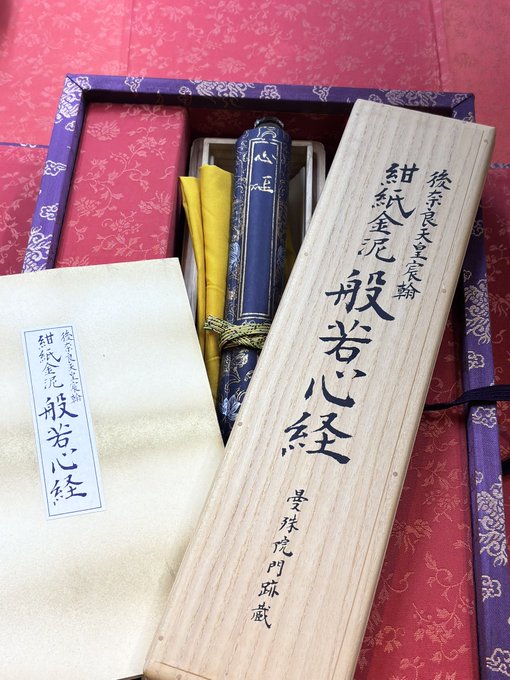 後奈良天皇宸翰
紺紙金泥 般若心経
曼殊院門跡蔵
心経
後奈良天皇宸翰
紺紙金泥 般若心経